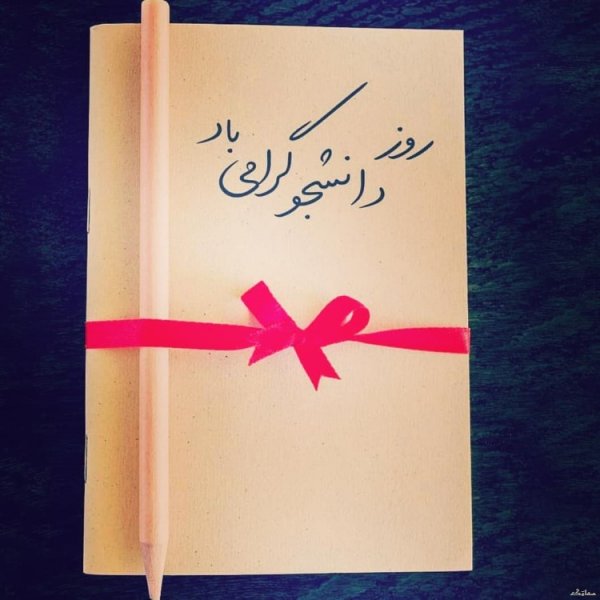 روز دانشجو گرامی باد